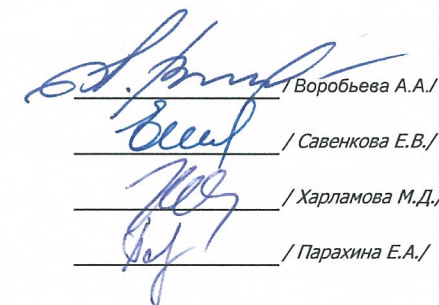 / Воробьева А.А./
/ Савенкова Е.В./
/ Харламова М.Д./
/ Парахина Е.А./